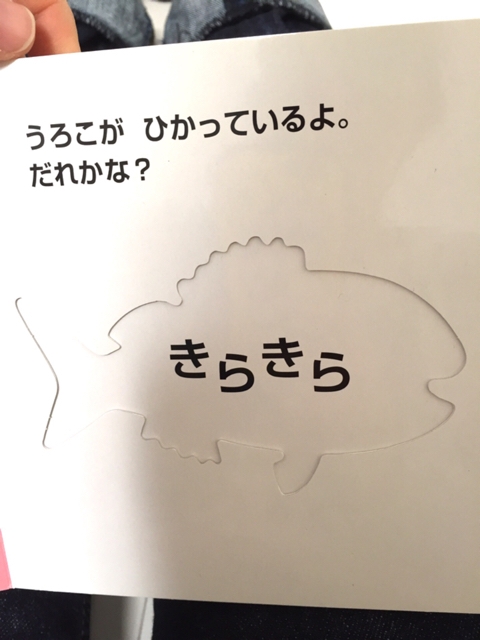 うろこが ひかっているよ。
だれかな？
きらきら